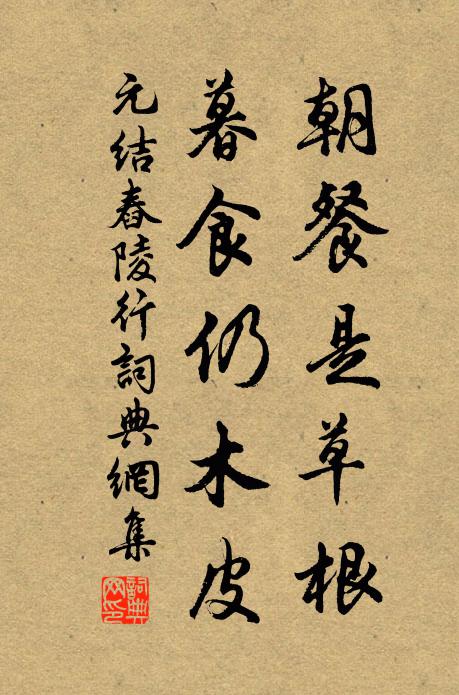 朝餐是草根
暮食仍木皮
元结舂陵行詞典網集
詞典网印